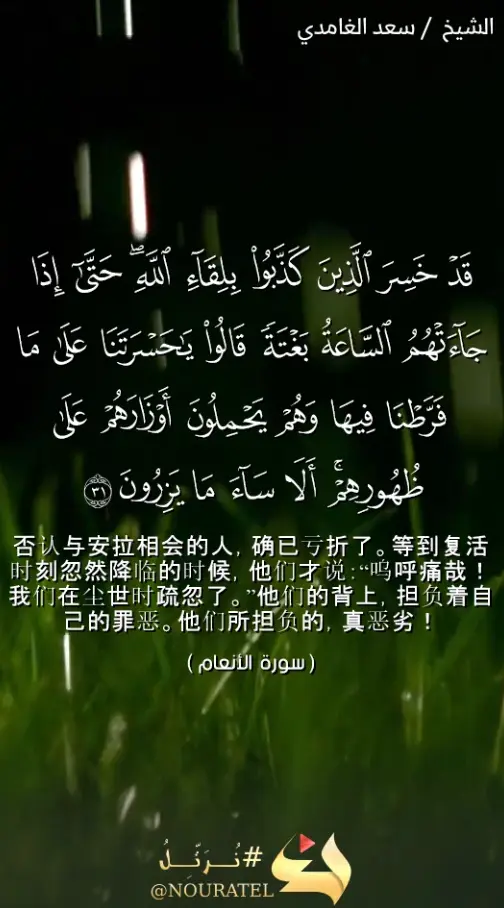 الشيخ / سعد الغامدي
قَدْ خَسِرَ ٱلَّذِينَ كَذَّبُوا۟ بِلِقَآءِ ٱللَّهِ ۖ حَتَّىٰٓ إِذَا
جَآءَتْهُمُ ٱلسَّاعَةُ بَغْتَةً قَالُوا۟ يَـٰحَسْرَتَنَا عَلَىٰ مَا
فَرَّطْنَا فِيهَا وَهُمْ يَحْمِلُونَ أَوْزَارَهُمْ عَلَىٰ
ظُهُورِهِمْ ۚ أَلَا سَآءَ مَا يَزِرُونَ ٣١
否认与安拉相会的人, 确已亏折了。等到复活
时刻忽然降临的时候, 他们才说:“呜呼痛哉!
我们在尘世时疏忽了。”他们的背上, 担负着自
己的罪恶。他们所担负的, 真恶劣!
( سورة الأنعام )
#نُـرَتِّـلُ
@NOURATEL